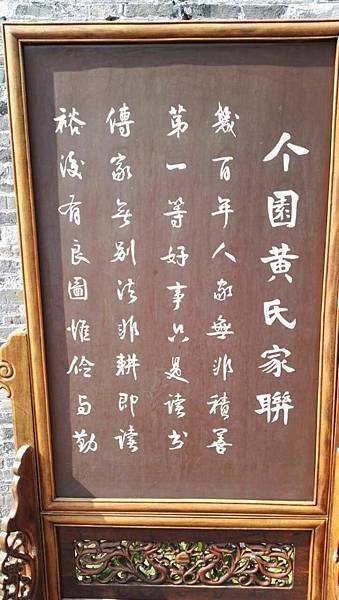 个園黄氏家聯
幾百年人家無非積善
第一等好事只是读书
傳家無别法非耕即读
裕後有良圖惟俭与勤